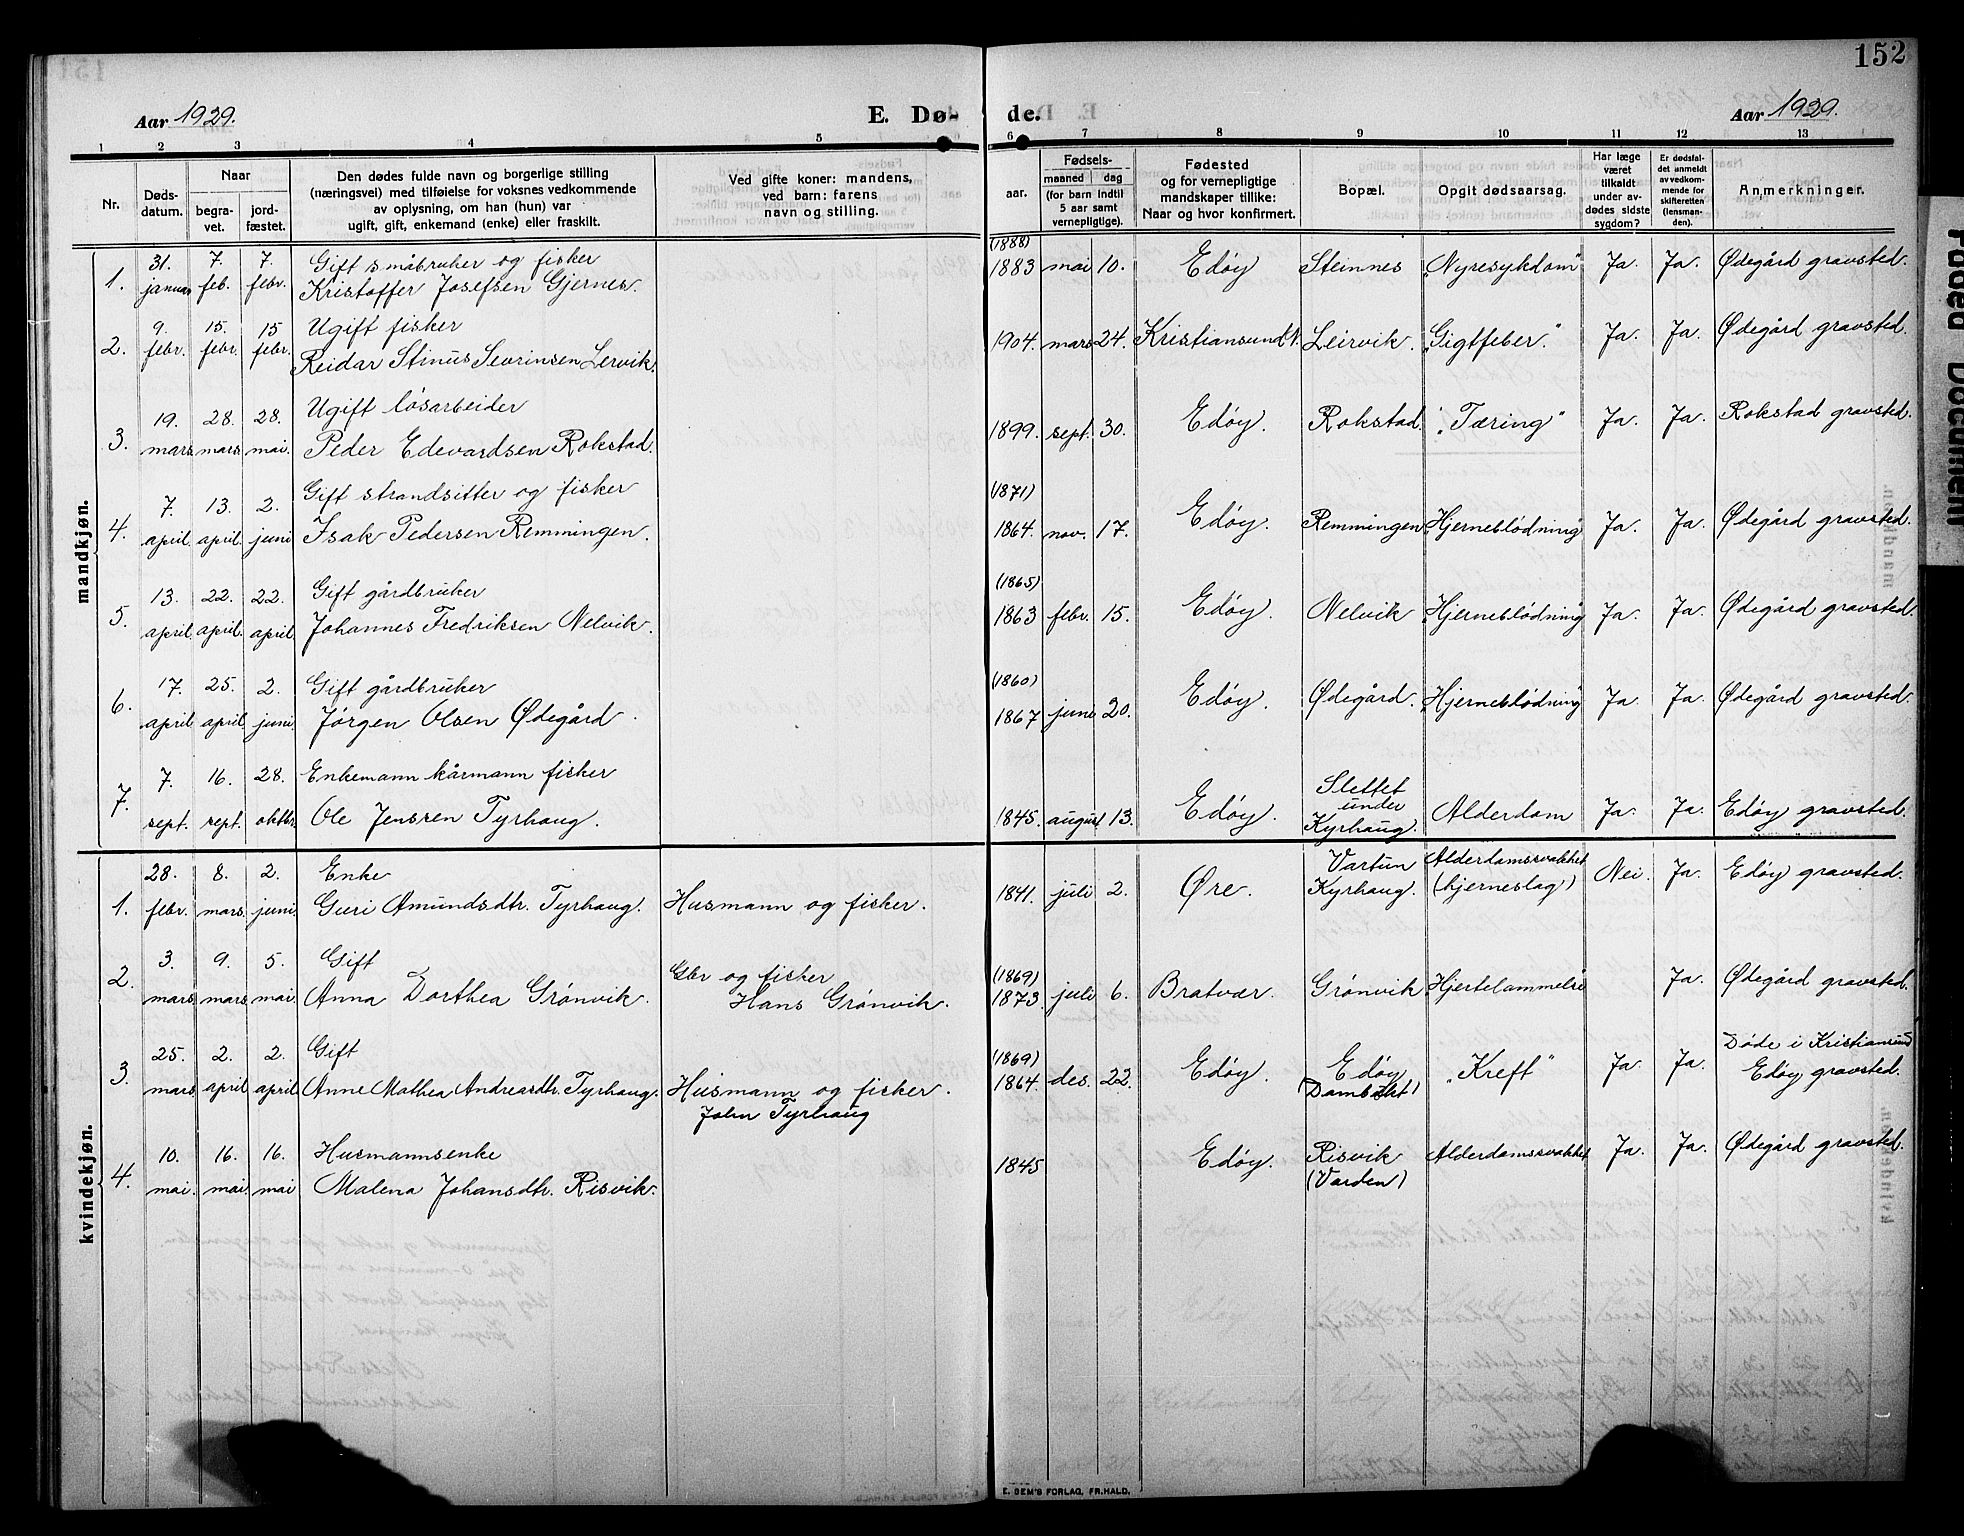 152
Aar 1929.
E. Dø-
de.
Aar 1929.
1 2 3 4 5 6 6 7 8 9 10 11 12 13
Nr.
Døds-
datum.
Naar
begra-
vet.
jord-
fæstet.
Den dødes fulde navn og borgerlige stilling
(næringsvei) med tilføielse for voksnes vedkommende
av oplysning, om han (hun) var
ugift, gift, enkemand (enke) eller fraskilt.
Ved gifte koner: mandens,
ved barn: farens
navn og stilling.
aar.
Fødsels-
maaned dag
(for barn indtil
5 aar samt
vernepligtige).
Fødested
og for vernepligtige
mandskaper tillike:
Naar og hvor konfirmert.
Bopæl.
Opgit dødsaarsag.
Har læge
været
tilkaldt
under av-
dødes sidste
sygdom?
Er dødsfal-
det anmeldt
av vedkom-
mende for
skifteretten
(lensman-
den).
Anmerkninger.
mandkjøn.
31. 7. 7. Gift småbruker og fisker (1888)
1. januar feb. febr. Kristoffer Josefsen Gjernes. 1883 mai 10. Edøy Steinnes "Nyresykdom" Ja. Ja. Ødegård gravsted.
9. 15. 15 Ugift fisker
2. febr. febr. febr. Reidar Stinus Sevrinsen Lervik. 1904. mars 24. Kristiansund N. Leirvik. "Gigtfeber." Ja. Ja. Ødegård gravsted.
19. 28. 28. Ugift løsarbeider
3. mars mars mai. Peder Edevardsen Rokstad. 1899. sept. 30. Edøy. Rokstad. "Tæring" Ja. Ja. Rokstad gravsted.
7. 13. 2. Gift strandsitter og fisker (1871)
4. april. april. juni Isak Pedersen Remmingen. 1864. nov. 17. Edøy. Remmingen "Hjerneblødning" Ja. Ja. Ødegård gravsted.
13. 22. 22. Gift gårdbruker (1865)
5. april april. april Johannes Fredriksen Nelvik. 1863 febr. 15. Edøy. Nelvik "Hjerneblødning" Ja. Ja. Ødegård gravsted.
17. 25. 2. Gift gårdbruker (1860)
6. april april juni Jørgen Olsen Ødegård. 1867 juni 20. Edøy. Ødegård. "Hjerneblødning" Ja Ja. Ødegård gravsted.
7. 16. 28. Enkemann kårmann fisker
7. sept. sept. oktbr. Ole Jenssen Tyrhaug. 1845. august 13. Edøy. Slettet
under
Kyrhaug. Alderdom Ja. Ja. Edøy gravsted.
kvindekjøn.
28. 8. 2. Enke
1. febr. mars. juni Guri Amundsdtr. Tyrhaug. Husmann og fisker. 1841. juli 2. Øre. Vartun
Kyrhaug. Alderdomssvakhet
(hjerneslag) Nei. Ja. Edøy gravsted.
3. 9. 5. Gift Gbr og fisker (1869)
2. mars mars mai Anna Dorthea Grønvik. Hans Grønvik. 1873. juli 6. Bratvær. Grønvik "Hjertelammelse Ja. Ødegård gravsted.
25. 2. 2. Gift (1869)
3. mars april april Anne Mathea Andreasdtr. Tyrhaug. Husmann og fisker.
John Tyrhaug 1864. des. 22. Edøy. Edøy "Kreft" Ja Ja. Døde i Kristiansund
Edøy gravsted.
10. 16. 16. Husmannsenke
4. mai. mai. mai Malena Johansdtr. Risvik. 1845 Edøy. Risvik
(Varden) Alderdomssvakhet Ja. Ja. Ødegård gravsted.
E. SEM'S FORLAG, FR.HALD.
Faded Document